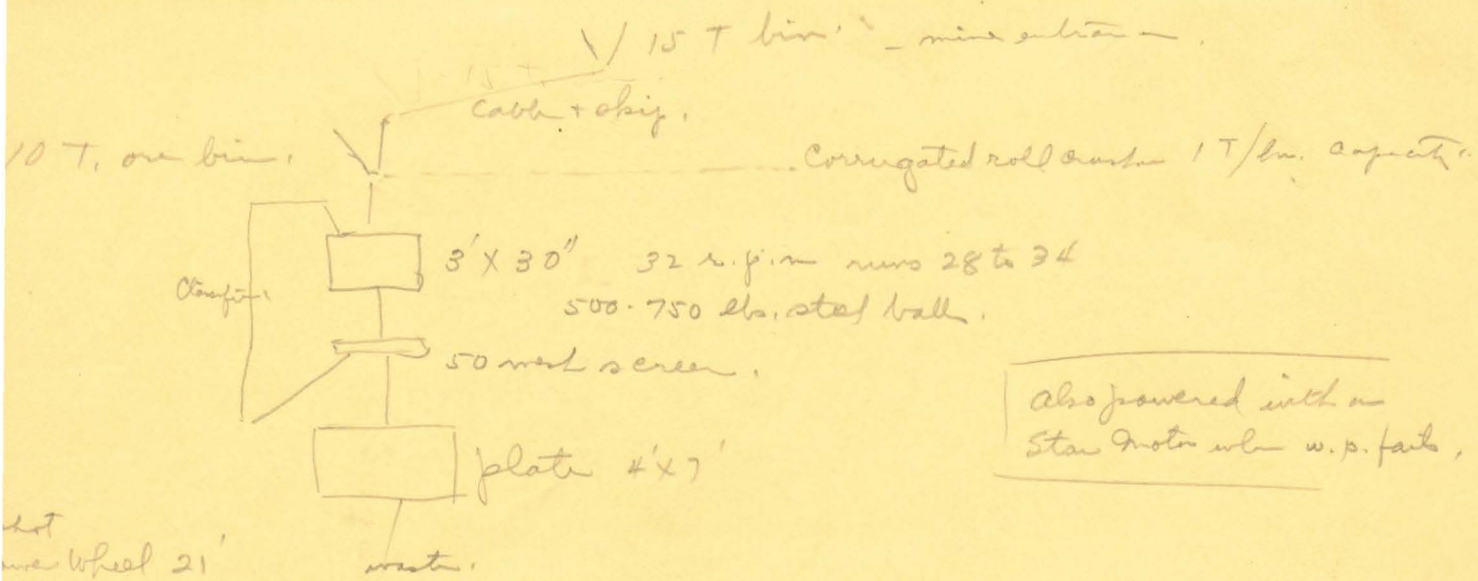 15 T bin - mine entrance.
cable + skip.
10 T. ore bin.
Corrugated roll crusher 1 T/hr. capacity.
3' X 30" 32 r.p.m runs 28 to 34
Classifier
500-750 lbs. steel balls.
50 mesh screen.
also powered with a
Star Motor when w.p. fails.
plate 4'x7'
Wheel 21'
waste.